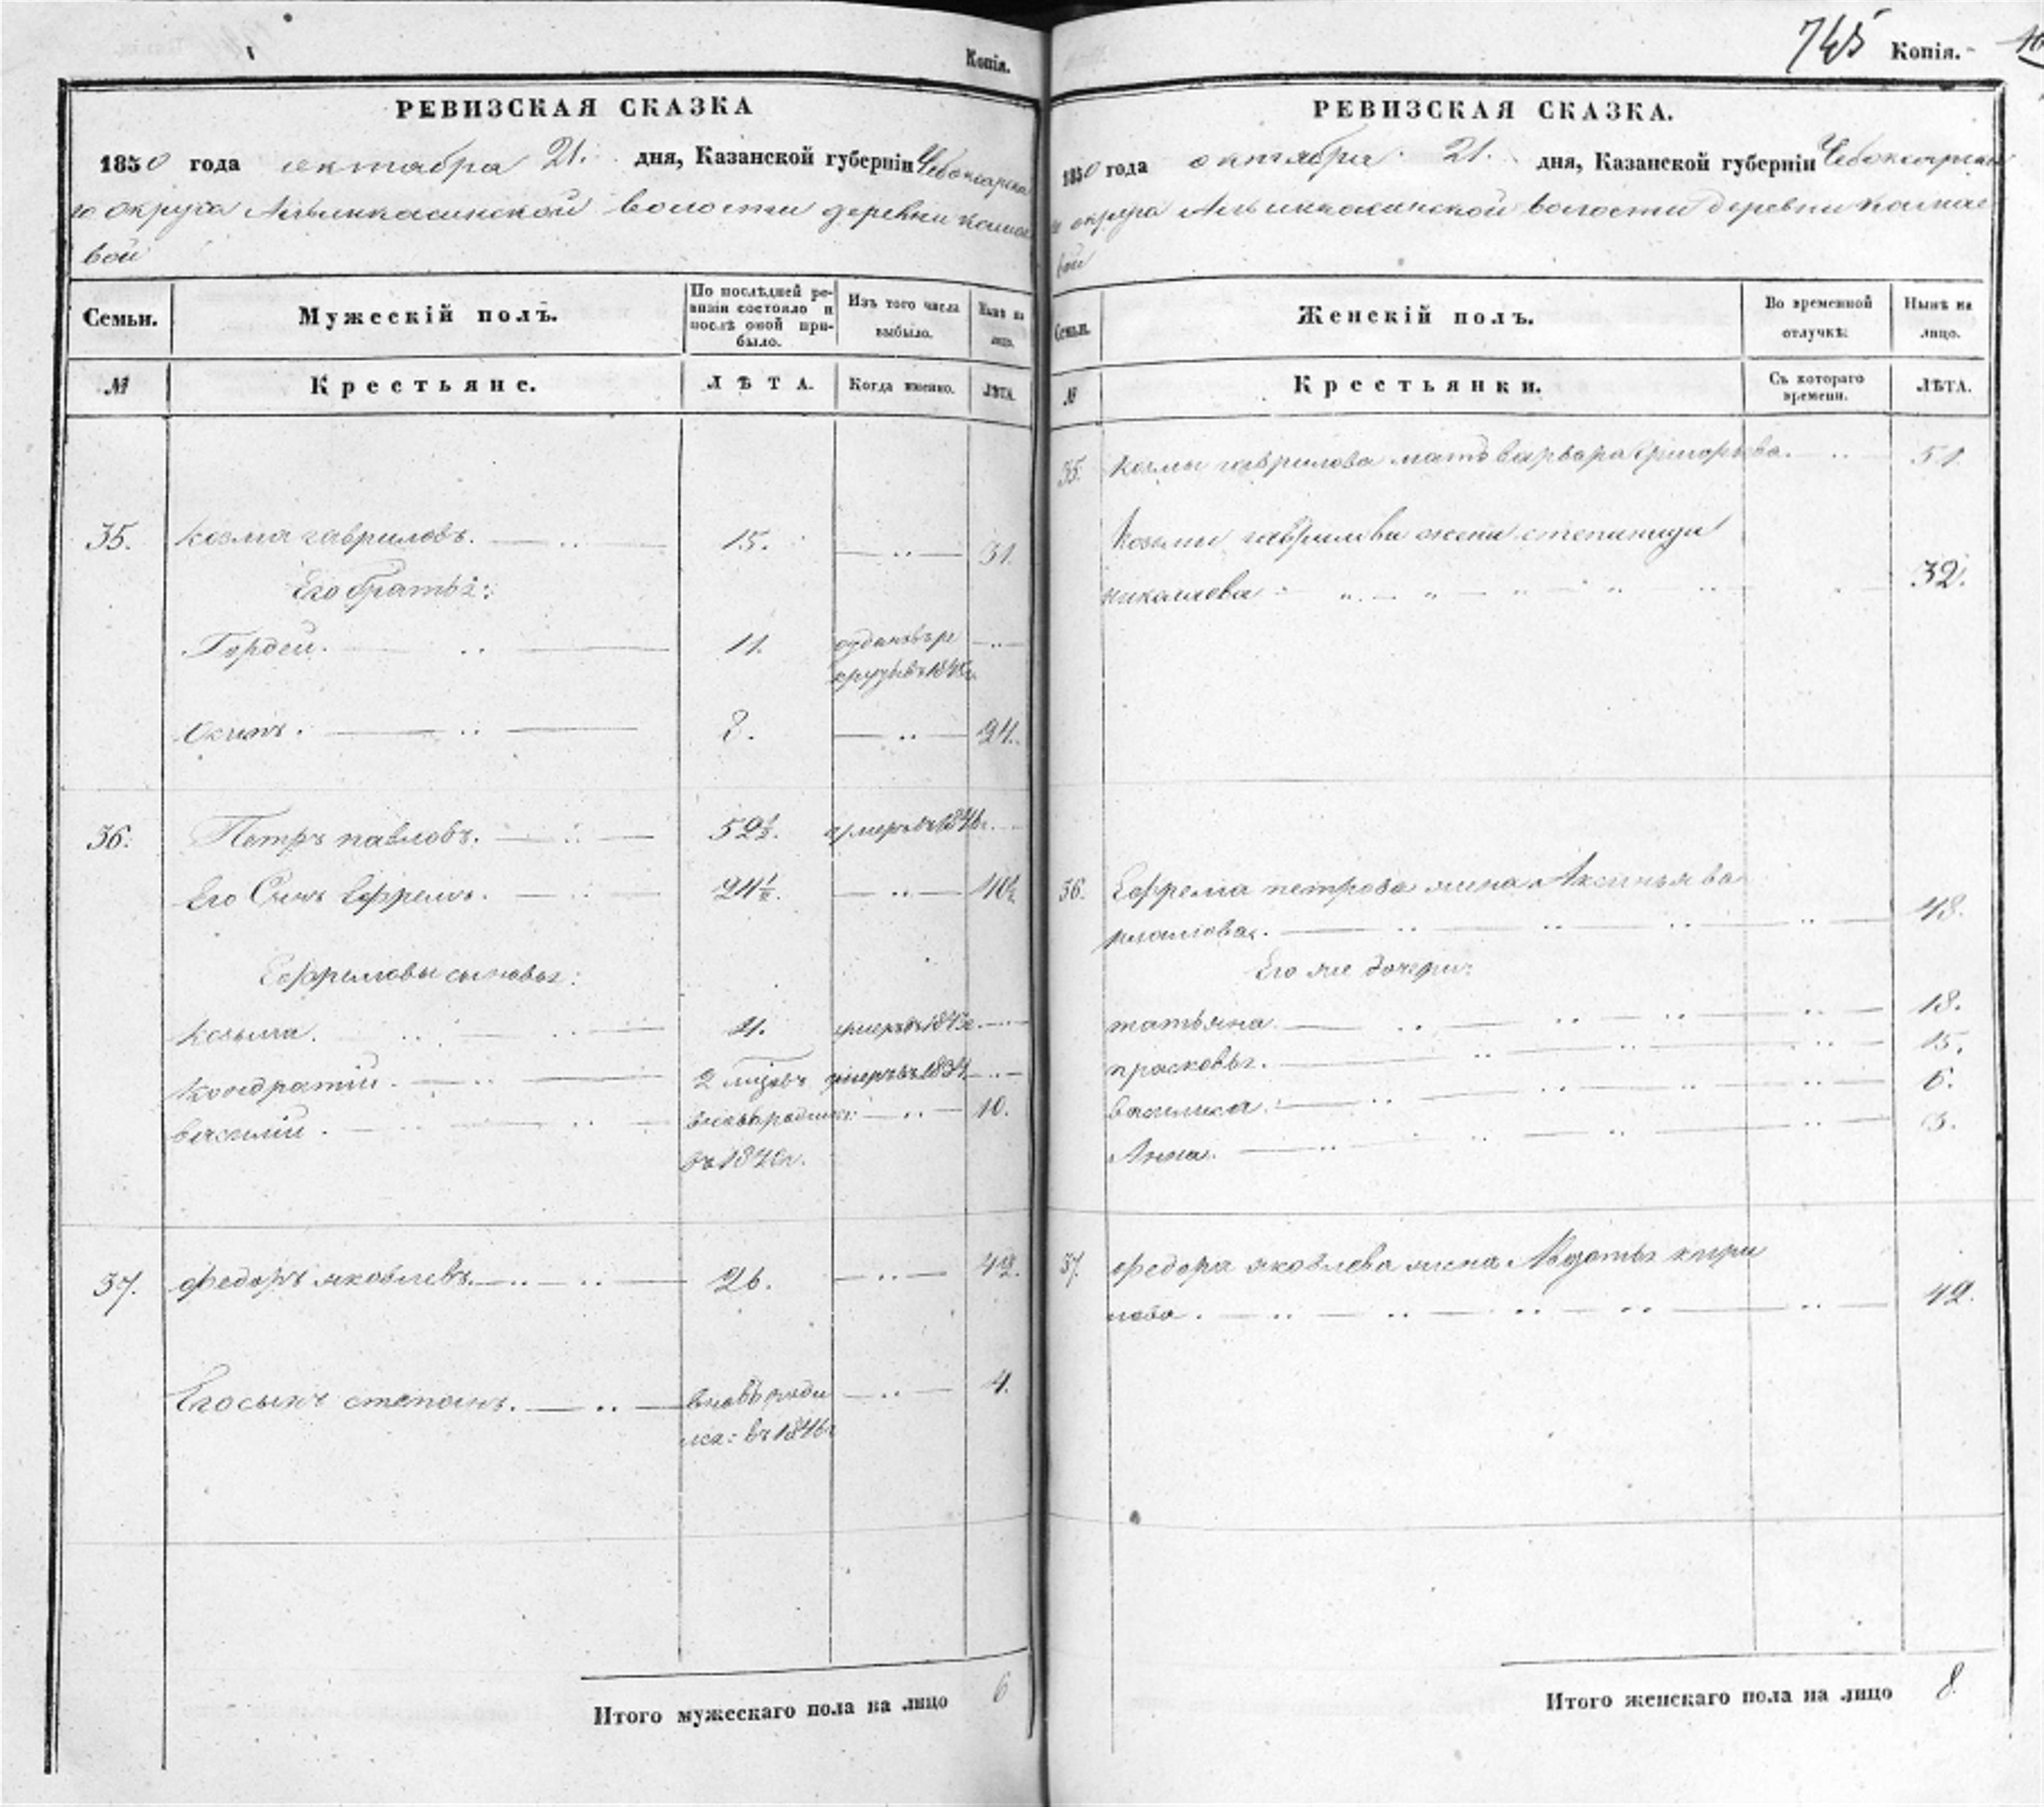 Копія.
РЕВИЗСКАЯ СКАЗКА
1850 года октября 21. дня, Казанской губерніи Чебоксарска
го округа волости деревни
вой
Семьи. Мужескій полъ. По послѣдней ре-
визіи состояло и
послѣ оной при-
было. Изъ того числа
выбыло. Нынѣ на
лицо.
№ Крестьяне. ЛѢТА. Когда именно. ЛѢТА.
35. козма гавриловъ. 15. 31.
Его братья:
Гордей. 11. отданъ въ ре
круты въ
8. 24.
36. Петръ павловъ. 52½. умеръ въ 1846г.
Его Сынъ Ефремъ. 24½. 40½
Ефремовы сыновья:
козьма. 4. умеръ въ
кондратий. 2 умеръ въ 1834
василий. вновь родился: 10.
въ 1840г.
37. федоръ яковлевъ. 26. 42.
Его сынъ степанъ. вновь роди 4.
лса: въ 1846г
Итого мужескаго пола на лицо 6
745 Копія.
РЕВИЗСКАЯ СКАЗКА.
1850 года октября 21. дня, Казанской губерніи Чебоксарска
го округа волости деревни
вой
Семьи. Женскій полъ. Во временной
отлучкѣ: Нынѣ на
лицо.
№ Крестьянки. Съ котораго
времени. ЛѢТА.
35. козмы гаврилова мать варвара григорьева. 51.
Козмы гаврилова жена степанида
николаева 32.
36. Ефрема петрова жена Аксинья ва
рламова. 48.
Его же дочери:
татьяна 18.
прасковья. 15.
василиса. 6.
Анна. 3.
37. федора яковлева жена Авдотья кири
лова. 42.
Итого женскаго пола на лицо 8.